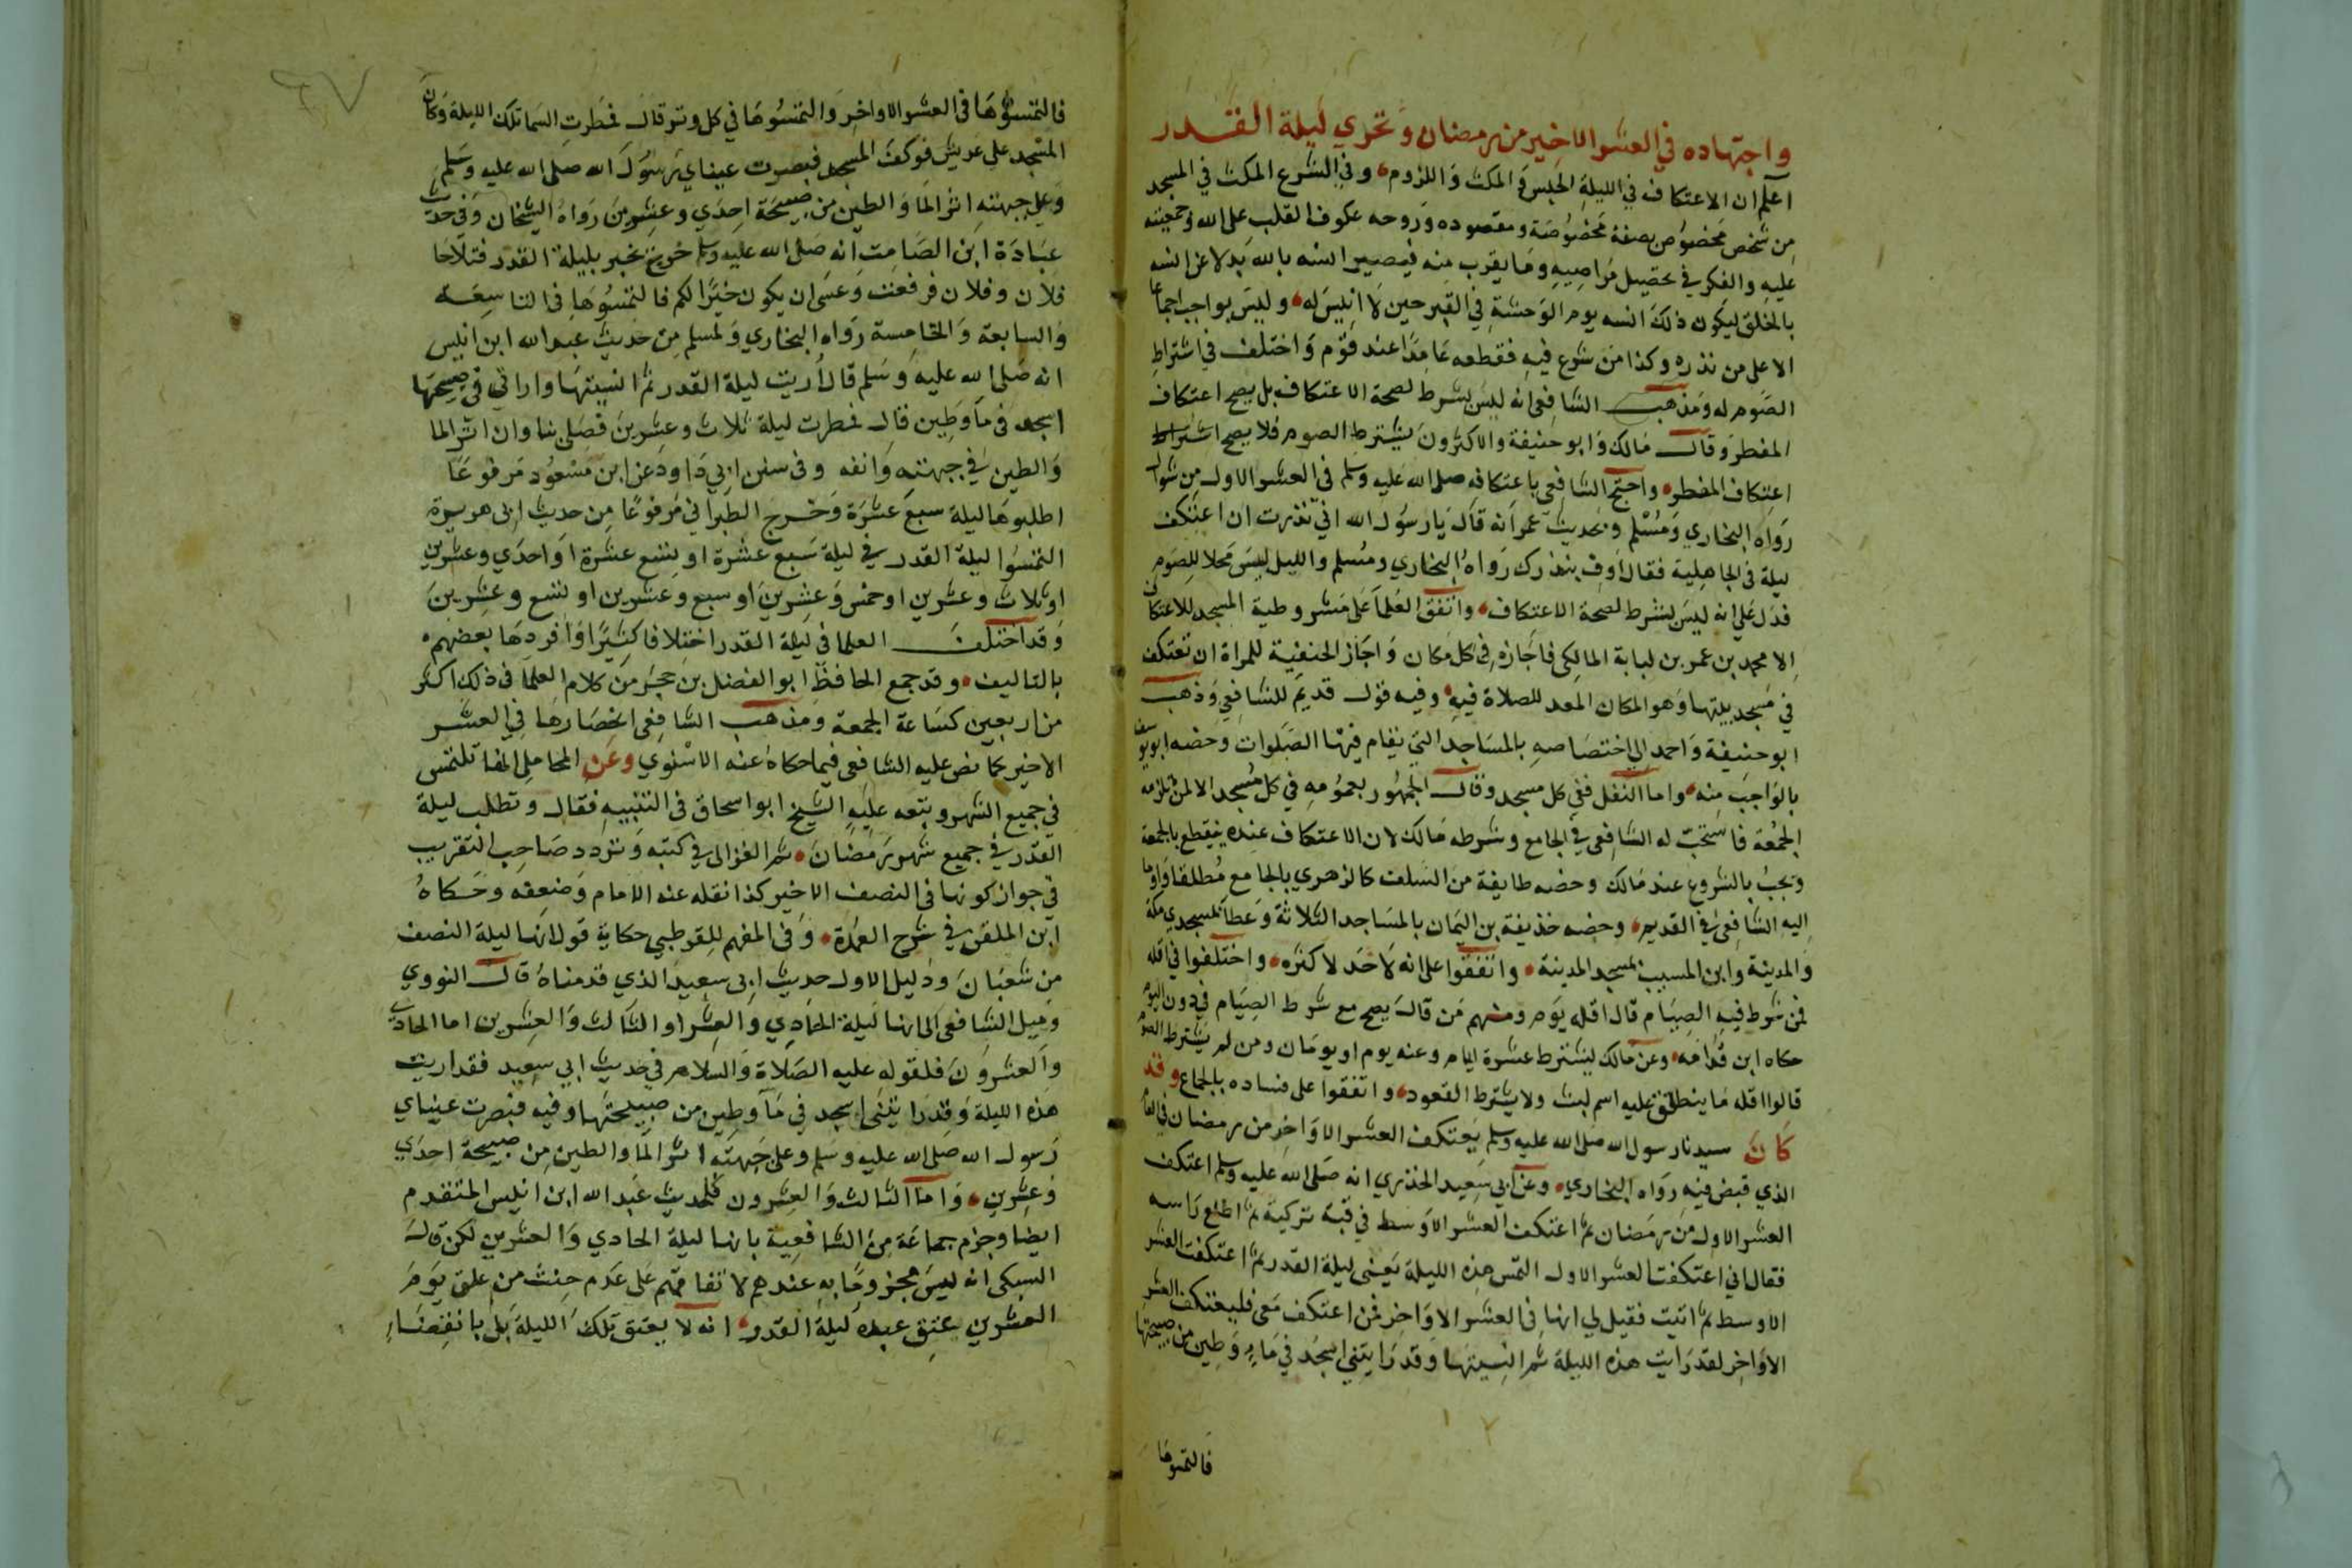 واجتهاده في العشر الاخير من رمضان وتحري ليلة القدر
اعلم ان الاعتكاف في الليلة الحبس والمكث واللزوم وفي الشرع المكث في المسجد
من شخص مخصوص بصفة مخصوصة ومقصوده وروحه عكوف القلب على الله وجمعيته
عليه والفكر في تحصيل مراضيه وما يقرب منه فيصير انسه بالله بدلا عن انسه
بالخلق ليكون ذلك انسه يوم الوحشة في القبر حين لا انيس له وليس بواجب اجماعا
الا على من نذره وكذا من شرع فيه فقطعه عامدا عند قوم واختلف في اشتراط
الصوم له ومذهب الشافعي انه ليس بشرط لصحة الاعتكاف بل يصح اعتكاف
المفطر وقال مالك وابو حنيفة والاكثرون يشترط الصوم فلا يصح اشتراط
اعتكاف المفطر واحتج الشافعي باعتكافه صلى الله عليه وسلم في العشر الاول من شوال
رواه البخاري ومسلم وبحديث عمر انه قال يا رسول الله اني نذرت ان اعتكف
ليلة في الجاهلية فقال اوف بنذرك رواه البخاري ومسلم والليل ليس محلا للصوم
فدل على انه ليس بشرط لصحة الاعتكاف واتفق العلما على مشروطية المسجد للاعتكاف
الا محمد بن عمر بن لبابة المالكي فاجازه في كل مكان واجاز الحنفية للمراة ان تعتكف
في مسجد بيتها وهو المكان المعد للصلاة فيه وفيه قول قديم للشافعي وذهب
ابو حنيفة واحمد الى اختصاصه بالمساجد التي يقام فيها الصلوات وخصه ابو يوسف
بالواجب منه واما النفل ففي كل مسجد وقال الجمهور بعمومه في كل مسجد الا لمن تلزمه
الجمعة فاستحب له الشافعي في الجامع وشرطه مالك لان الاعتكاف عنده ينقطع بالجمعة
ويجب بالشروع عند مالك وخصه طايفة من السلف كالزهري بالجامع مطلقا واوما
اليه الشافعي في القديم وخصه حذيفة بن اليمان بالمساجد الثلاثة وعطا بمسجدي مكة
والمدينة وابن المسيب بمسجد المدينة واتفقوا على انه لا حد لاكثره واختلفوا في اقله
فمن شرط فيه الصيام قال اقله يوم ومنهم من قال يصح مع شرط الصيام في دون اليوم
حكاه ابن قدامه وعن مالك يشترط عشرة ايام وعنه يوم او يومان ومن لم يشترط الصوم
قالوا اقله ما ينطلق عليه اسم لبث ولا يشترط القعود واتفقوا على فساده بالجماع وقد
كان سيدنا رسول الله صلى الله عليه وسلم يعتكف العشر الاواخر من رمضان في العام
الذي قبض فيه رواه البخاري وعن ابي سعيد الخدري انه صلى الله عليه وسلم اعتكف
العشر الاول من رمضان ثم اعتكف العشر الاوسط في قبة تركية ثم اطلع راسه
فقال اني اعتكفت العشر الاول التمس هذه الليلة يعني ليلة القدر ثم اعتكفت العشر
الاوسط ثم اتيت فقيل لي انها في العشر الاواخر فمن اعتكف معي فليعتكف العشر
الاواخر لقد رايت هذه الليلة ثم انسيتها وقد رايتني اسجد في ماء وطين من صبيحتها
فالتمسوها
فالتمسوها في العشر الاواخر والتمسوها في كل وتر قال فمطرت السما تلك الليلة وكان
المسجد على عريش فوكف المسجد فبصرت عيناي رسول الله صلى الله عليه وسلم
وعلى جبهته اثر الما والطين من صبيحة احدي وعشرين رواه الشيخان وفي حديث
عبادة ابن الصامت انه صلى الله عليه وسلم خرج يخبر بليلة القدر فتلاحا
فلان وفلان فرفعت وعسى ان يكون خيرا لكم فالتمسوها في التاسعة
والسابعة والخامسة رواه البخاري ولمسلم من حديث عبد الله ابن انيس
انه صلى الله عليه وسلم قال اريت ليلة القدر ثم انسيتها واراني في صبيحتها
اسجد في ما وطين قال فمطرت ليلة ثلاث وعشرين فصلى بنا وان اثر الما
والطين في جبهته وانفه وفي سنن ابي داود عن ابن مسعود مرفوعا
اطلبوها ليلة سبع عشرة وخرج الطبراني مرفوعا من حديث ابي هريرة
التمسوا ليلة القدر في ليلة سبع عشرة او تسع عشرة او احدي وعشرين
او ثلاث وعشرين او خمس وعشرين او سبع وعشرين او تسع وعشرين
وقد اختلف العلما في ليلة القدر اختلافا كثيرا وافردها بعضهم
بالتاليف وقد جمع الحافظ ابو الفضل بن حجر من كلام العلما في ذلك اكثر
من اربعين كساعة الجمعة ومذهب الشافعي انحصارها في العشر
الاخير كما نص عليه الشافعي فيما حكاه عنه الاسنوي وعن المحاملي انها تلتمس
في جميع الشهر وتبعه عليه الشيخ ابو اسحاق في التنبيه فقال وتطلب ليلة
القدر في جميع شهر رمضان ثم الغزالي في كتبه وتردد صاحب التقريب
في جواز كونها في النصف الاخير كذا نقله عنه الامام وضعفه وحكاه
ابن الملقن في شرح العمدة وفي المفهم للقرطبي حكاية قول انها ليلة النصف
من شعبان ودليل الاول حديث ابي سعيد الذي قدمناه قال النووي
وميل الشافعي الى انها ليلة الحادي والعشر او الثالث والعشرين اما الحادي
والعشرون فلقوله عليه الصلاة والسلام في حديث ابي سعيد فقد اريت
هذه الليلة وقد رايتني اسجد في ما وطين من صبيحتها وفيه فبصرت عيناي
رسول الله صلى الله عليه وسلم وعلى جبهته اثر الما والطين من صبيحة احدي
وعشرين واما الثالث والعشرون فلحديث عبد الله ابن انيس المتقدم
ايضا وجزم جماعة من الشافعية بانها ليلة الحادي والعشرين لكن قال
السبكي انه ليس مجزوما به عندهم لاتفاقهم على عدم حنث من علق يوم
العشرين عتق عبده ليلة القدر انه لا يعتق تلك الليلة بل بانقضاء